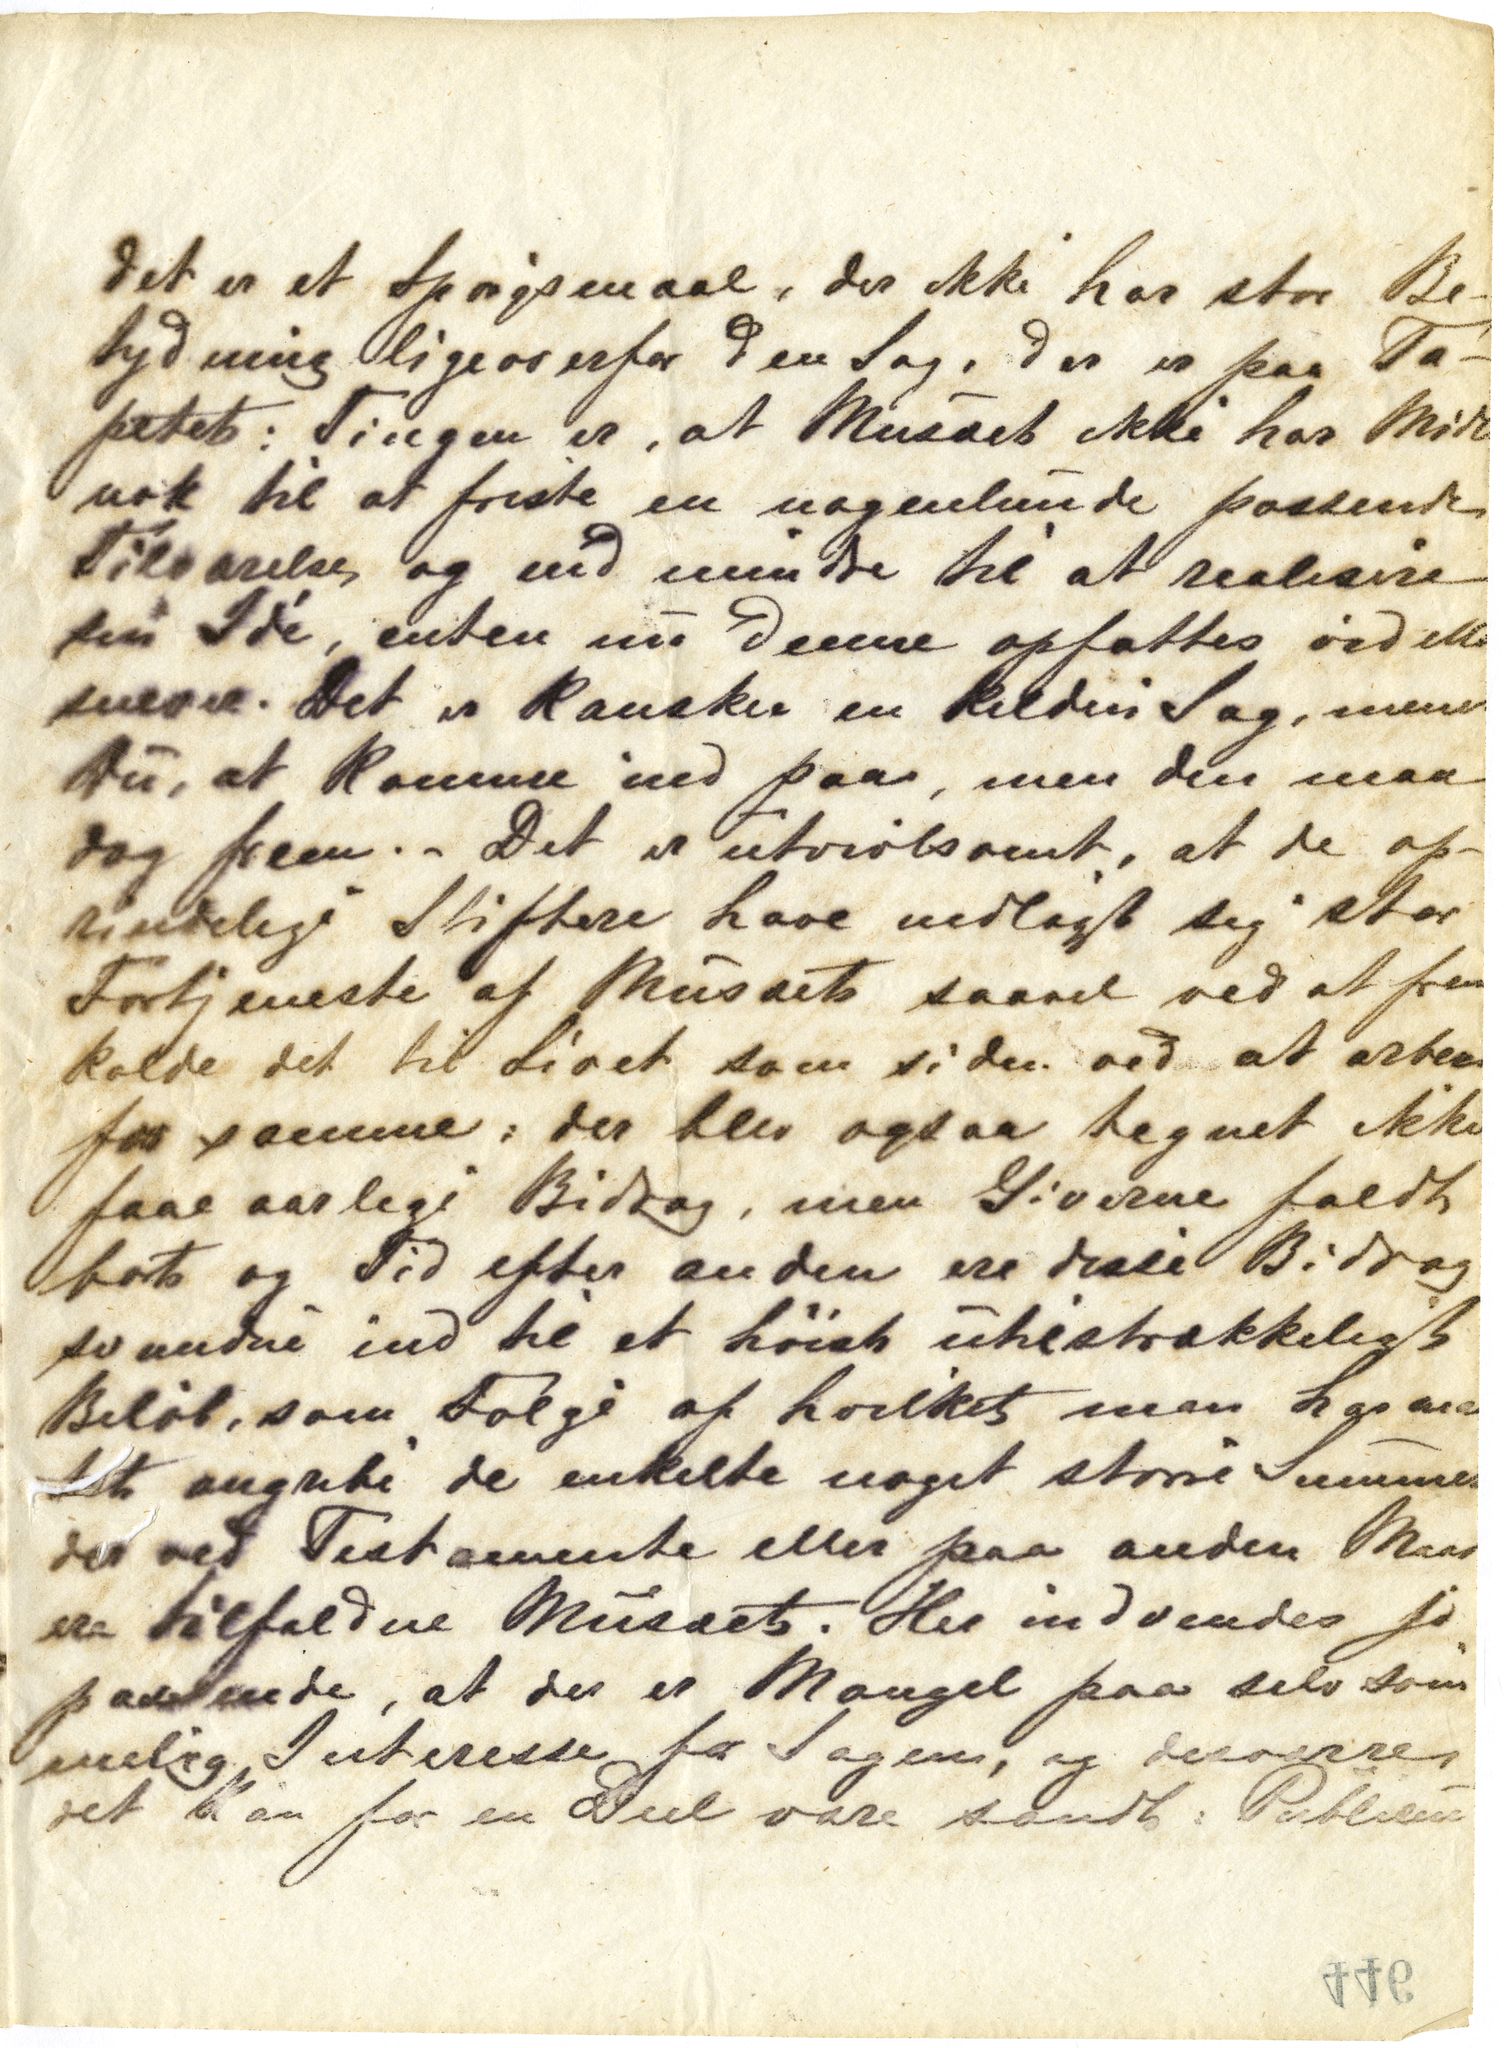 det er et Spörgsmaal, der ikke har stor Be-
tydning ligeoverfor den Sag, der er paa Ta-
petet: Tingen er, at Musæet ikke har Midl
nok til at friste en nogenlunde passende
Tilværelse, og end mindre til at realisere
sin Idé, enten nu denne opfattes vid elle
snever. Det er kanskee en kilden Sag, mener
Du, at komme ind paa, men den maa
dog frem. - Det er utvivlsomt, at de op-
rindelige Stiftere have nedlagt sig stor
Fortjeneste af Musæet saavel ved at frem
kalde det til Livet som siden ved at arbei
for samme; der blev ogsaa tegnet ikke
faae aarlige Bidrag, men Giverne faldt
bort og Tid efter anden ere disse Bidrag
svundne ind til et höist utilstrækkeligt
Belöb, som Fölge af hvilket man har maa
tet angribe de enkelte noget större Summer
der ved Testamente eller paa anden Maad
ere tilfaldne Musæet. Her indvendes jo
paastaaende, at der er Mangel paa selv söm
melig Interesse for Sagen, og desværre,
det kan for en Deel være sandt: Publikum
446